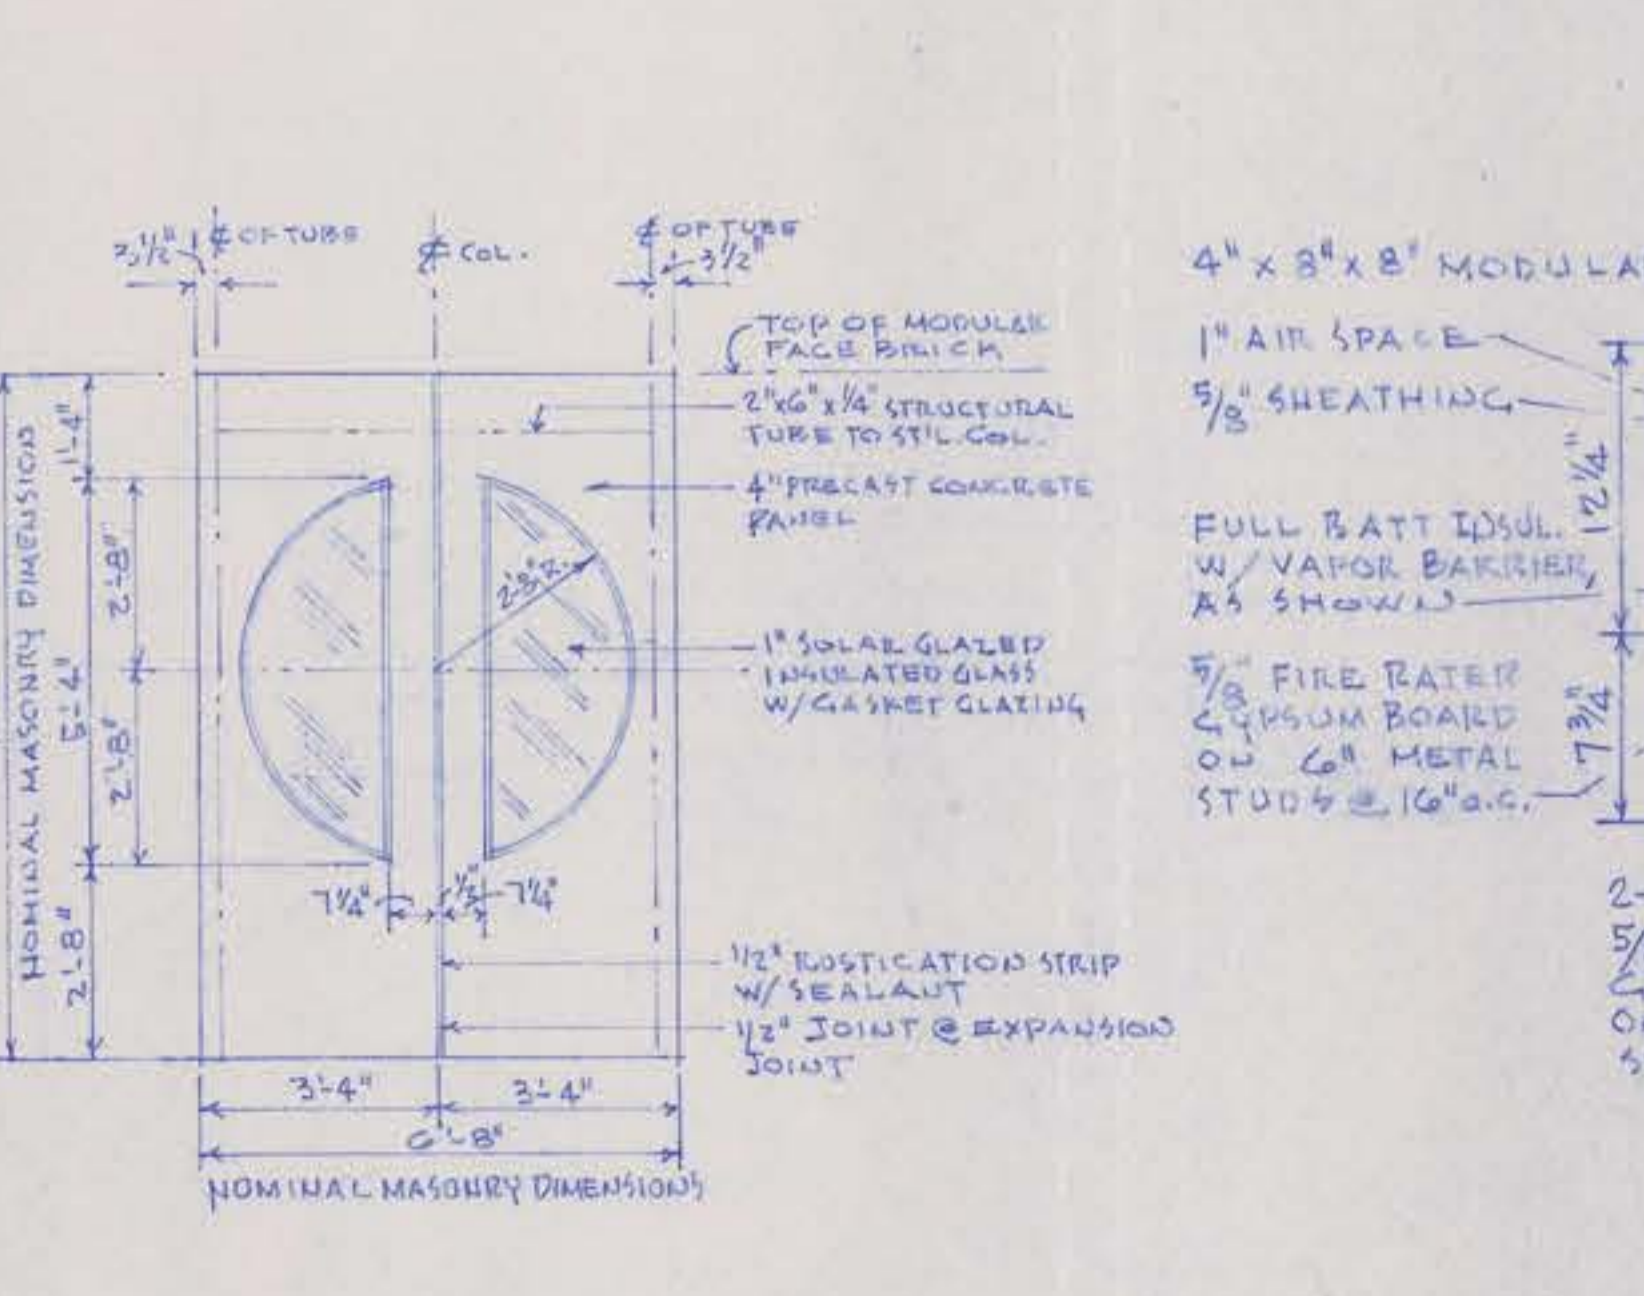 3 1/2"
℄ OF TUBE
℄ COL.
℄ OF TUBE
3 1/2"
TOP OF MODULAR
FACE BRICK
2"x6"x1/4" STRUCTURAL
TUBE TO ST'L. COL.
4" PRECAST CONCRETE
PANEL
1" SOLAR GLAZED
INSULATED GLASS
W/ GASKET GLAZING
1/2" RUSTICATION STRIP
W/ SEALANT
1/2" JOINT @ EXPANSION
JOINT
NOMINAL MASONRY DIMENSION
1'-4"
5'-4"
2'-8"
2'-8"
2'-8"
2'-8" R.
7 1/4"
1/2"
7 1/4"
3'-4"
3'-4"
6'-8"
NOMINAL MASONRY DIMENSIONS
4" x 8" x 8" MODULA
1" AIR SPACE
5/8" SHEATHING
FULL BATT INSUL.
W/ VAPOR BARRIER,
AS SHOWN
5/8" FIRE RATED
GYPSUM BOARD
ON 6" METAL
STUDS @ 16" O.C.
12 1/4"
7 3/4"
2-
5/
G
O
S